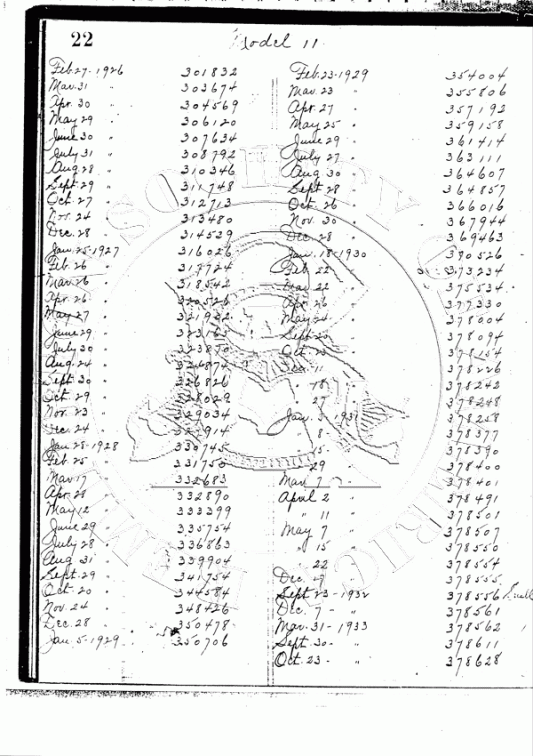 22
Model 11
Feb 27-1926 301832
Mar. 31 " 303674
Apr. 30 " 304569
May 29 " 306120
June 30 " 307634
July 31 " 308792
Aug 28 " 310346
Sept. 29 " 311748
Oct. 27 " 312713
Nov. 24 " 313480
Dec. 28 " 314539
Jan. 25-1927 316026
Feb. 26 " 317724
Mar. 26 " 318542
Apr. 26 " 320526
May 27 " 321922
June 29 "
July 30 "
Aug. 24 "
Sept. 30 " 326826
Oct. 29 " 328029
Nov. 23 " 329034
Dec. 24 "
Jan. 28-1928 330745
Feb. 25 " 331750
Mar. 17 " 332683
Apr. 28 " 332890
May 12 " 333399
June 29 " 335754
July 28 " 336863
Aug 31 " 339904
Sept. 29 " 341754
Oct. 20 " 344584
Nov. 24 " 348426
Dec. 28 " 350478
Jan. 5-1929 350706
Feb. 23-1929 354004
Mar. 23 " 355806
Apr. 27 " 357192
May 25 " 359158
June 29 " 361414
July 27 " 363111
Aug 30 " 364607
Sept 28 " 364857
Oct. 26 " 366016
Nov. 30 " 367944
Dec. 28 " 369463
Jan. 18-1930 370526
Feb. 22 " 373234
Mar. 22 " 375534
Apr. 26 " 377330
May 24 " 378004
Sept 378094
Oct. 378154
378226
18 378242
27 378248
Jan. 1931 378258
8 378377
15 378390
29 378400
Mar. 7 378401
April 2 " 378491
" 11 " 378501
May 7 " 378507
" 15 " 378550
22 378554
Dec. 9 " 378555
Sept 23-1932 378556
Dec. 7 - " 378561
Mar. 31-1933 378562
Sept. 30 - " 378611
Oct. 23 - " 378628